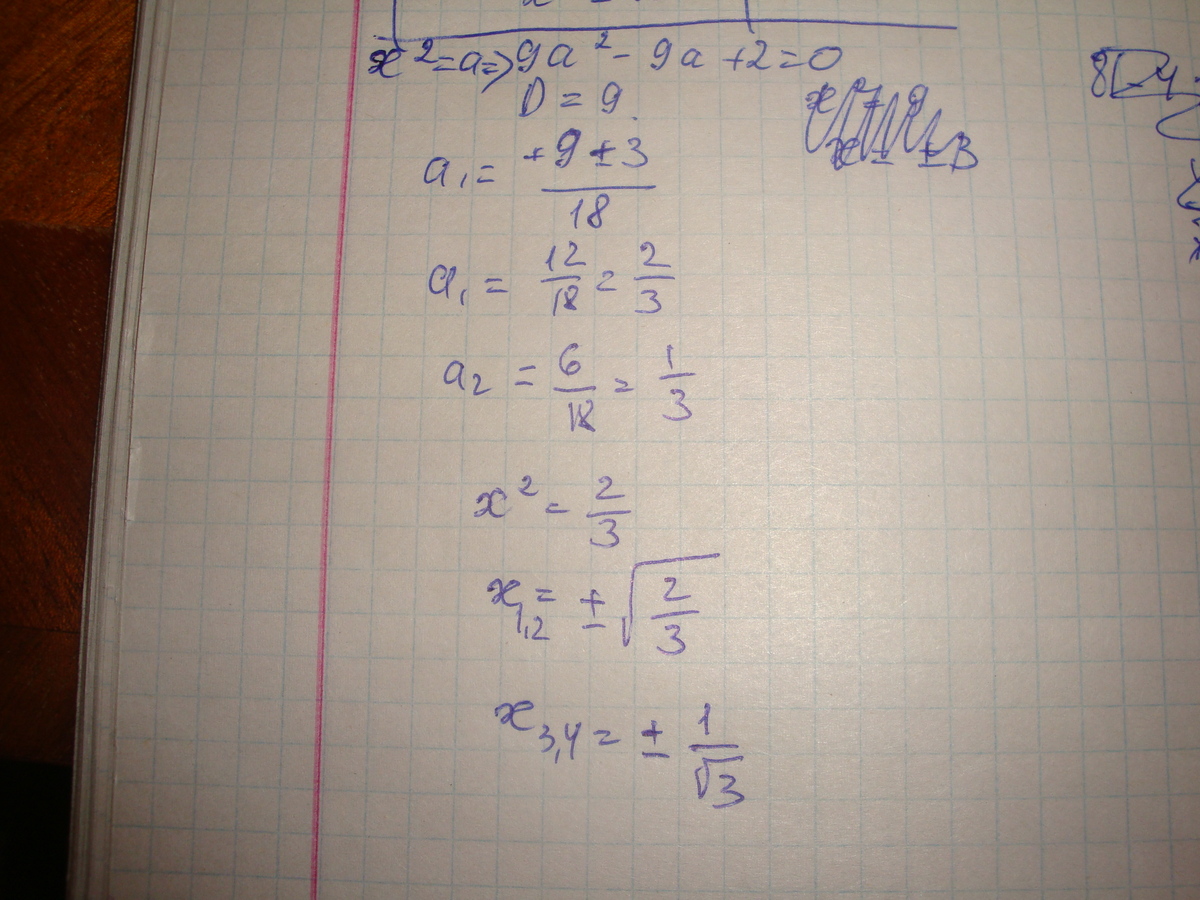 x² = a => 9a² - 9a + 2 = 0
D = 9
a₁ = (+9 ± 3)/18
a₁ = 12/18 = 2/3
a₂ = 6/18 = 1/3
x² = 2/3
x₁,₂ = ± √(2/3)
x₃,₄ = ± 1/√3